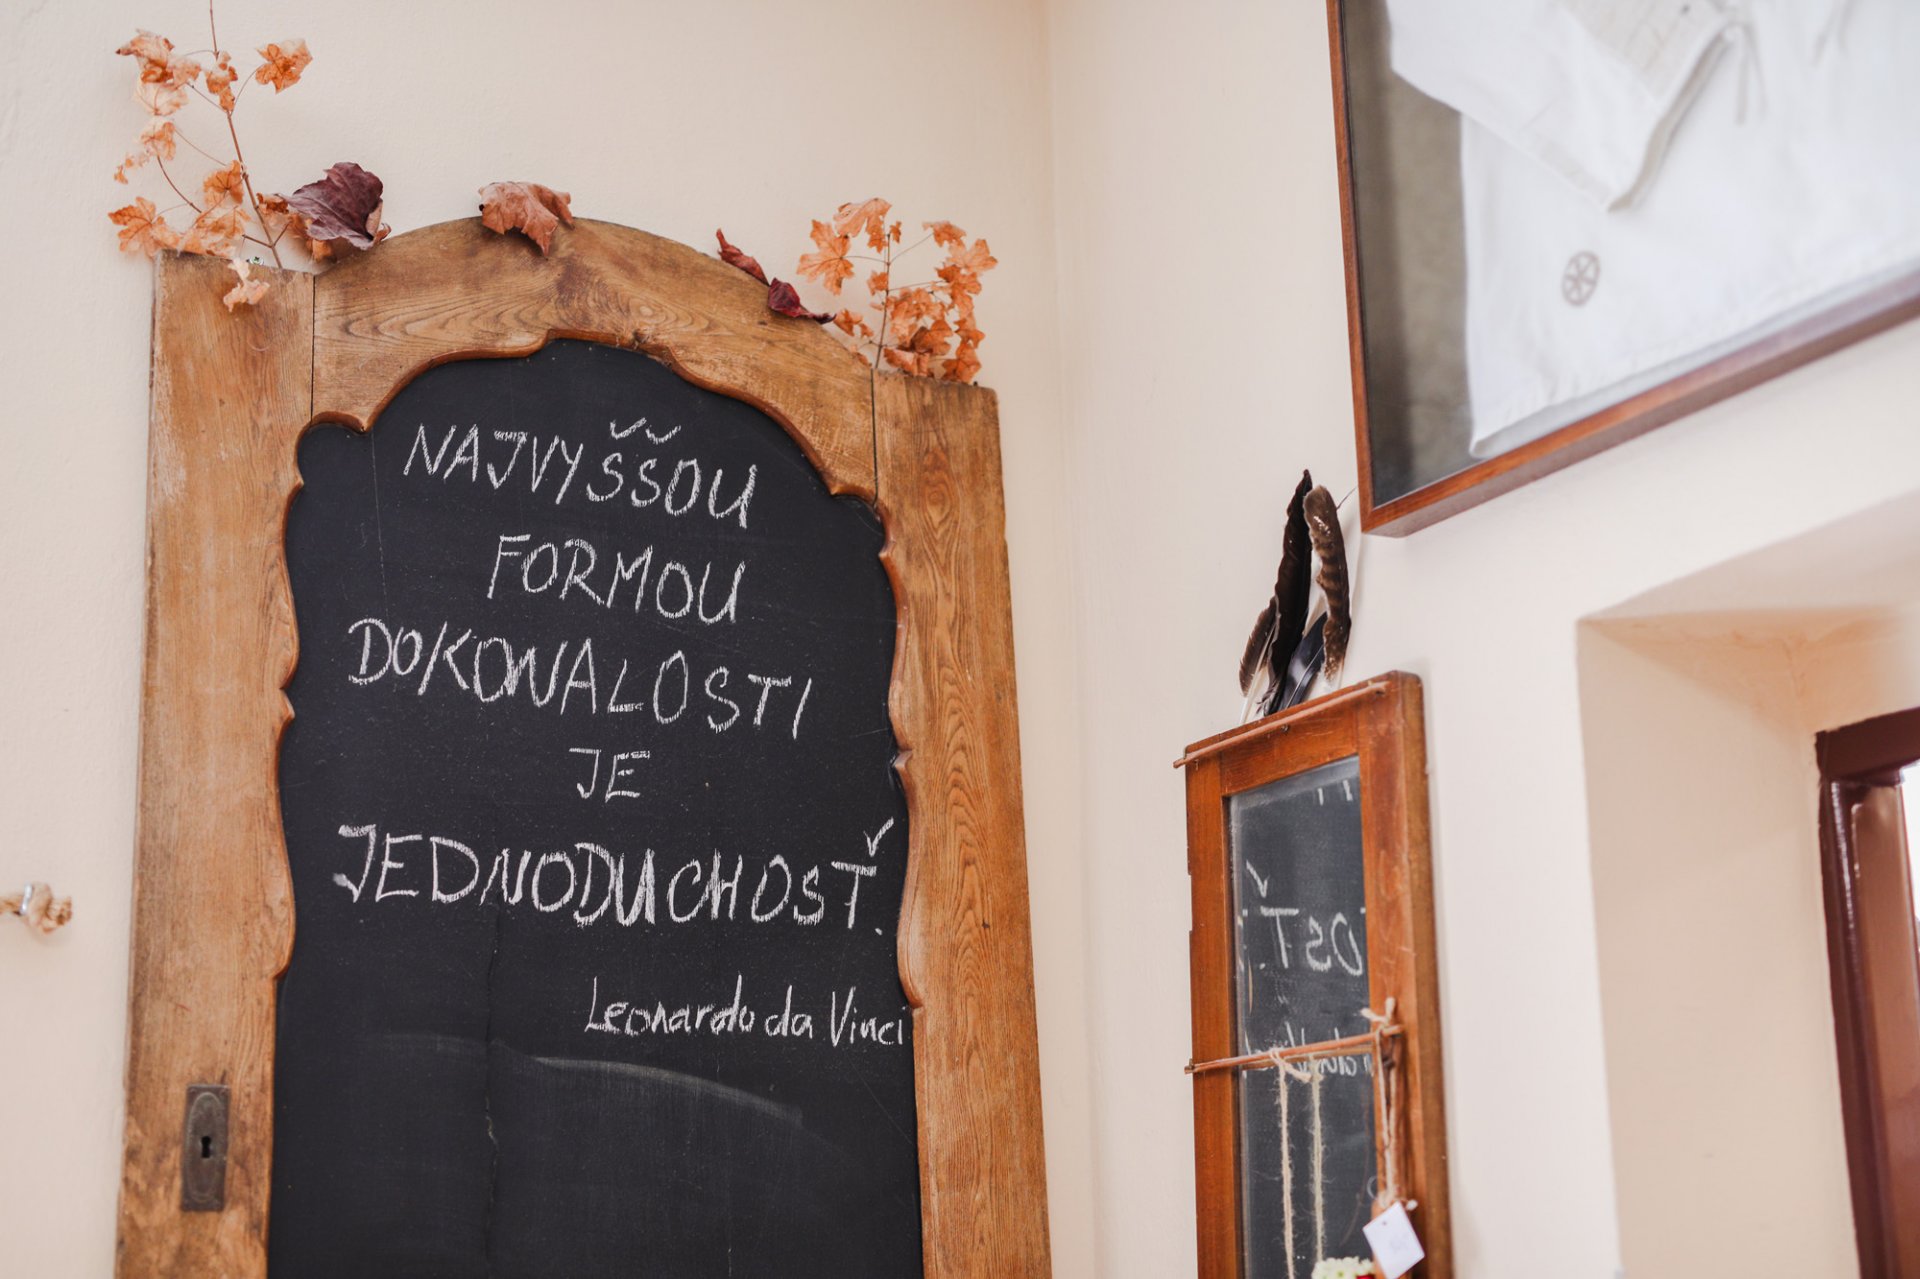 NAJVYŠŠOU
FORMOU
DOKONALOSTI
JE
JEDNODUCHOSŤ.
Leonardo da Vinci